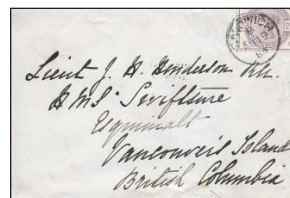 Lieut J. H. Henderson R.N.
H.M.S. Swiftsure
Esquimalt
Vancouver's Island
British Columbia